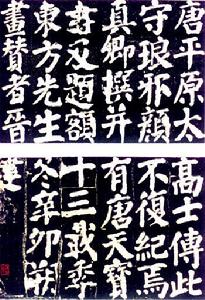 唐平原太
守琅邪顏
真卿撰并
書及題額
東方先生
畫贊者晉
高士傳此
不復紀焉
有唐天寶
十三載季
冬辛卯朔
建